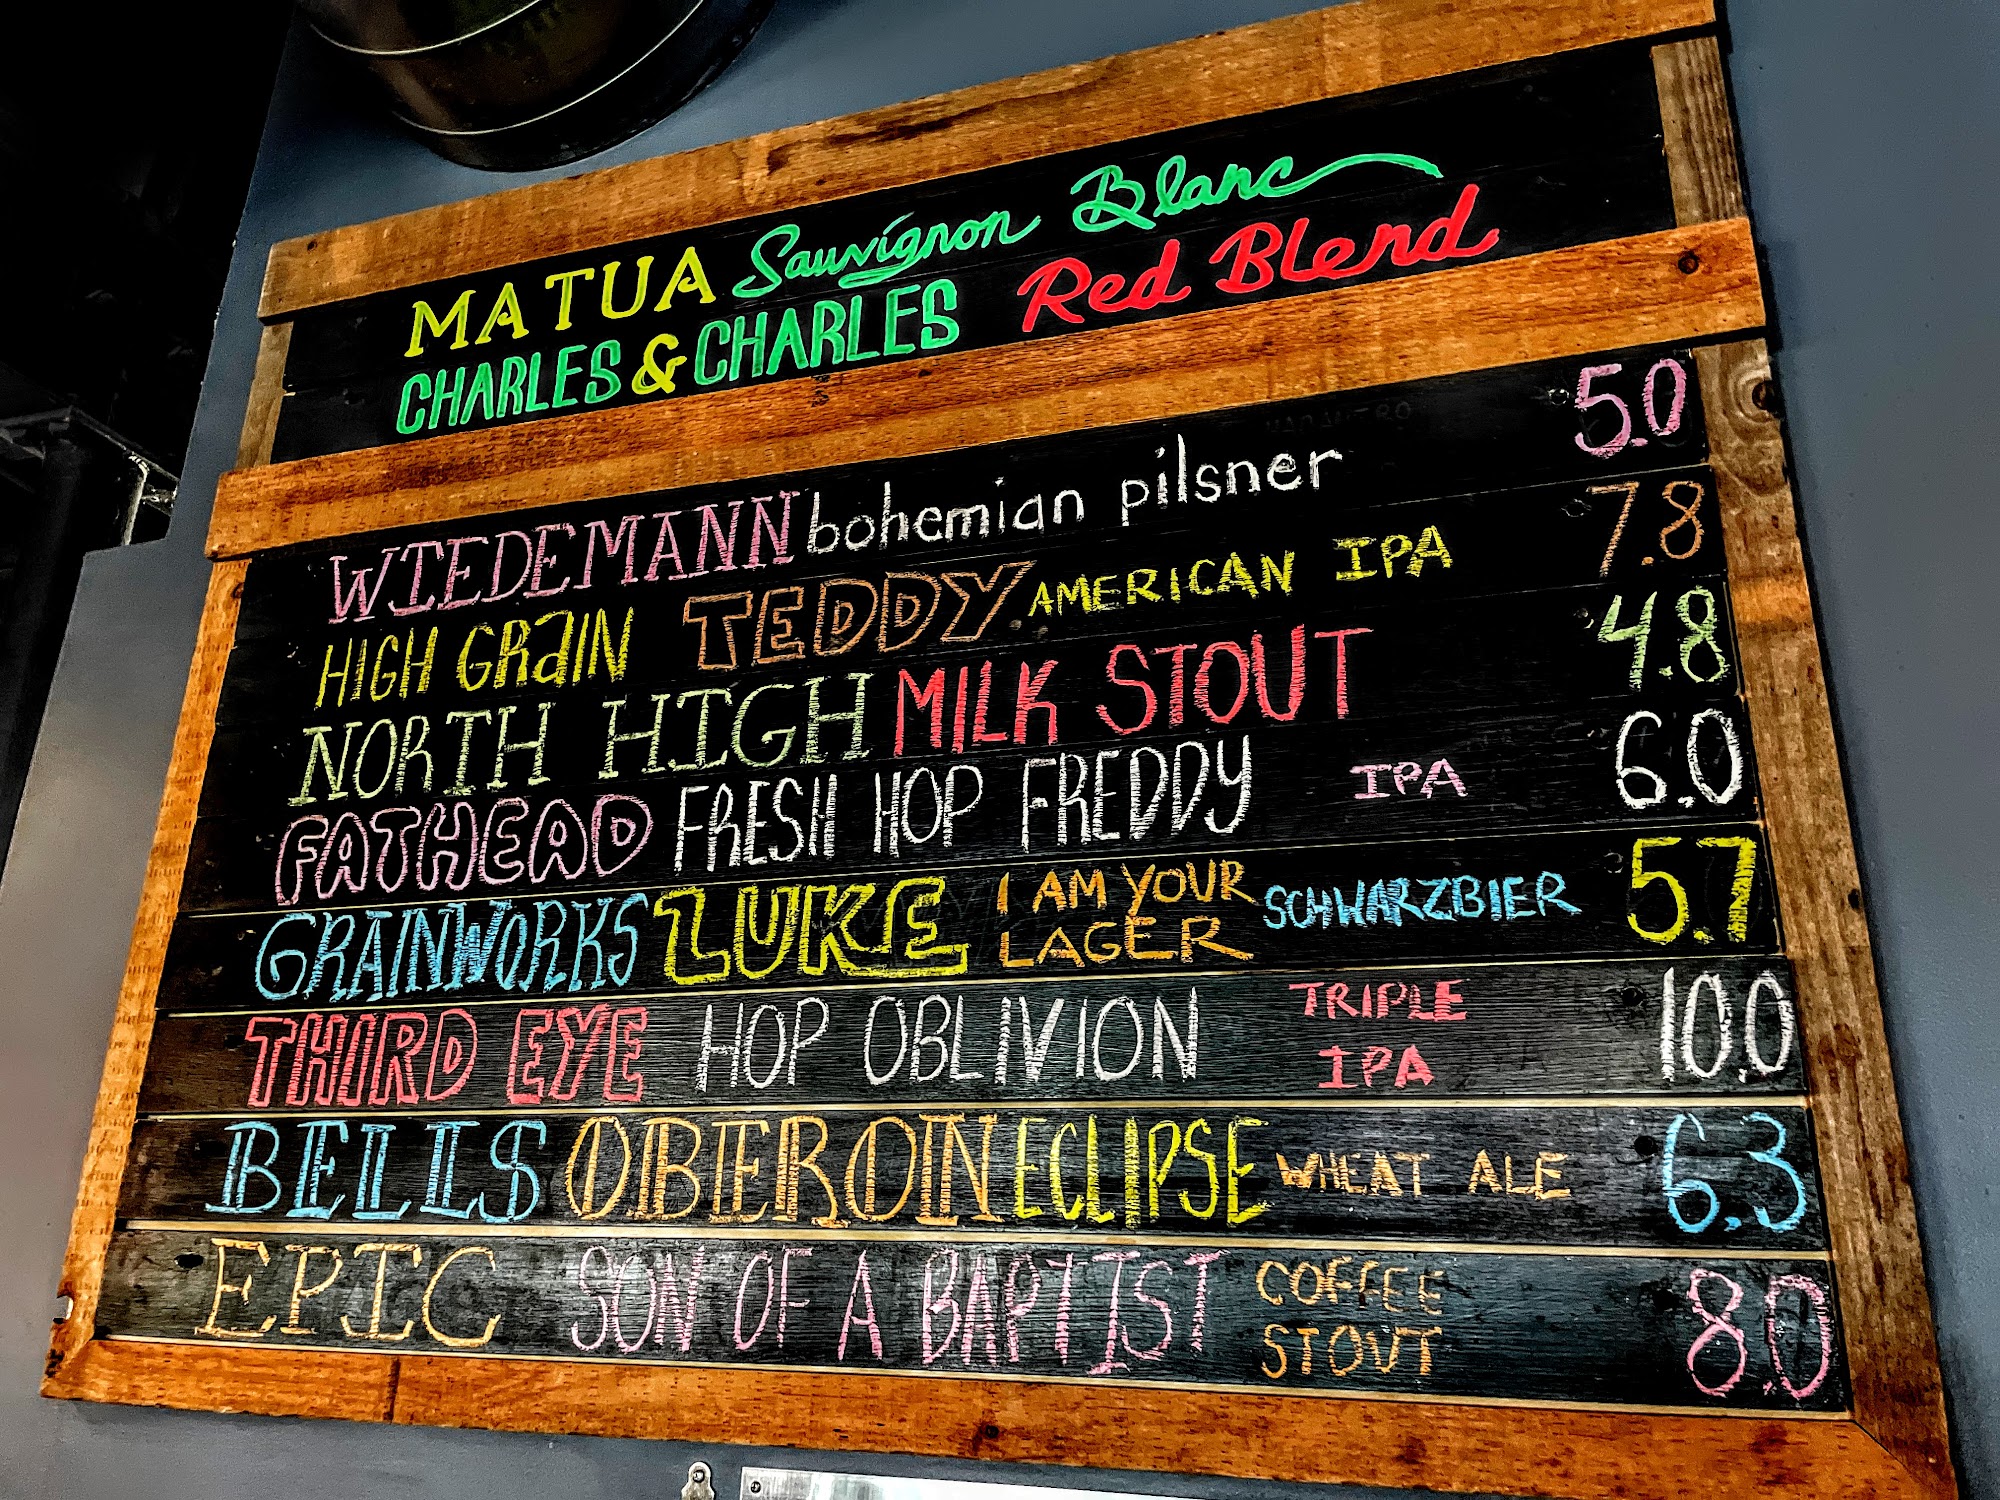 MATUA Sauvignon Blanc
CHARLES & CHARLES Red Blend
WIEDEMANN bohemian pilsner 5.0
HIGH GRaIN TEDDY AMERICAN IPA 7.8
NORTH HIGH MILK STOUT 4.8
FATHEAD FRESH HOP FREDDY IPA 6.0
GRAINWORKS LUKE I AM YOUR LAGER SCHWARZBIER 5.7
THIRD EYE HOP OBLIVION TRIPLE IPA 10.0
BELLS OBERON ECLIPSE WHEAT ALE 6.3
EPIC SON OF A BAPTIST COFFEE STOUT 8.0